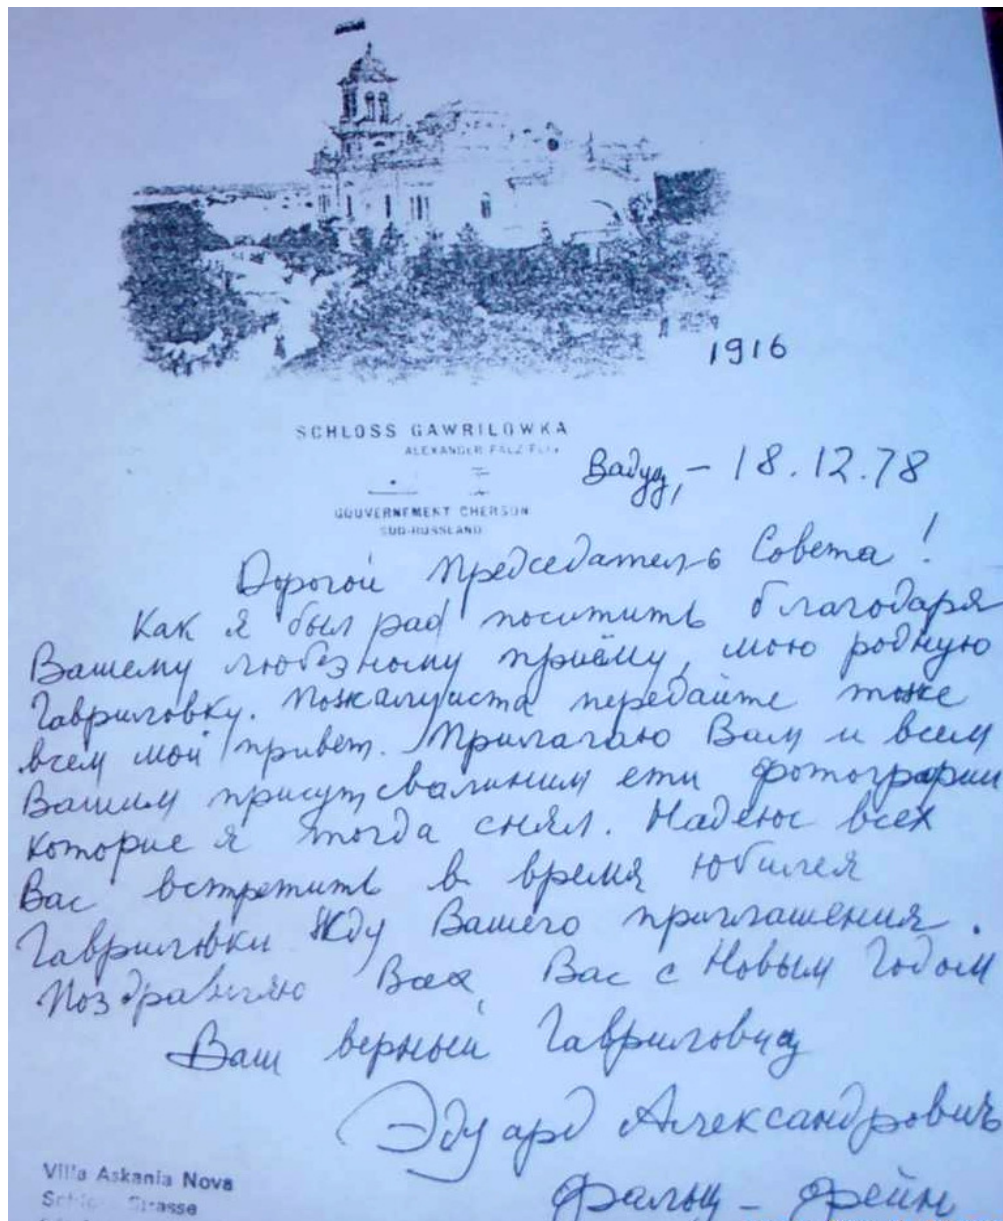 1916
SCHLOSS GAWRILOWKA
ALEXANDER FALZ-FEIN
Вадуц, - 18.12.78
GOUVERNEMENT CHERSON
SÜD-RUSSLAND
Дорогой Председатель Совета!
Как я был рад поситить благодаря
Вашему любезному приёму, мою родную
Гавриловку. Пожалуиста передайте тоже
всем мой привет. Прилагаю Вам и всем
Вашим ети фотографии
которие я тогда снял. Надеюс всех
Вас встретить в время юбилея
Гавриловки Жду Вашего приглашения.
Поздравляю Всех, Вас с Новым Годом
Ваш верный Гавриловец
Эдуард Александровичъ
Фальц-Фейн
Villa Askania Nova
Schloss Strasse